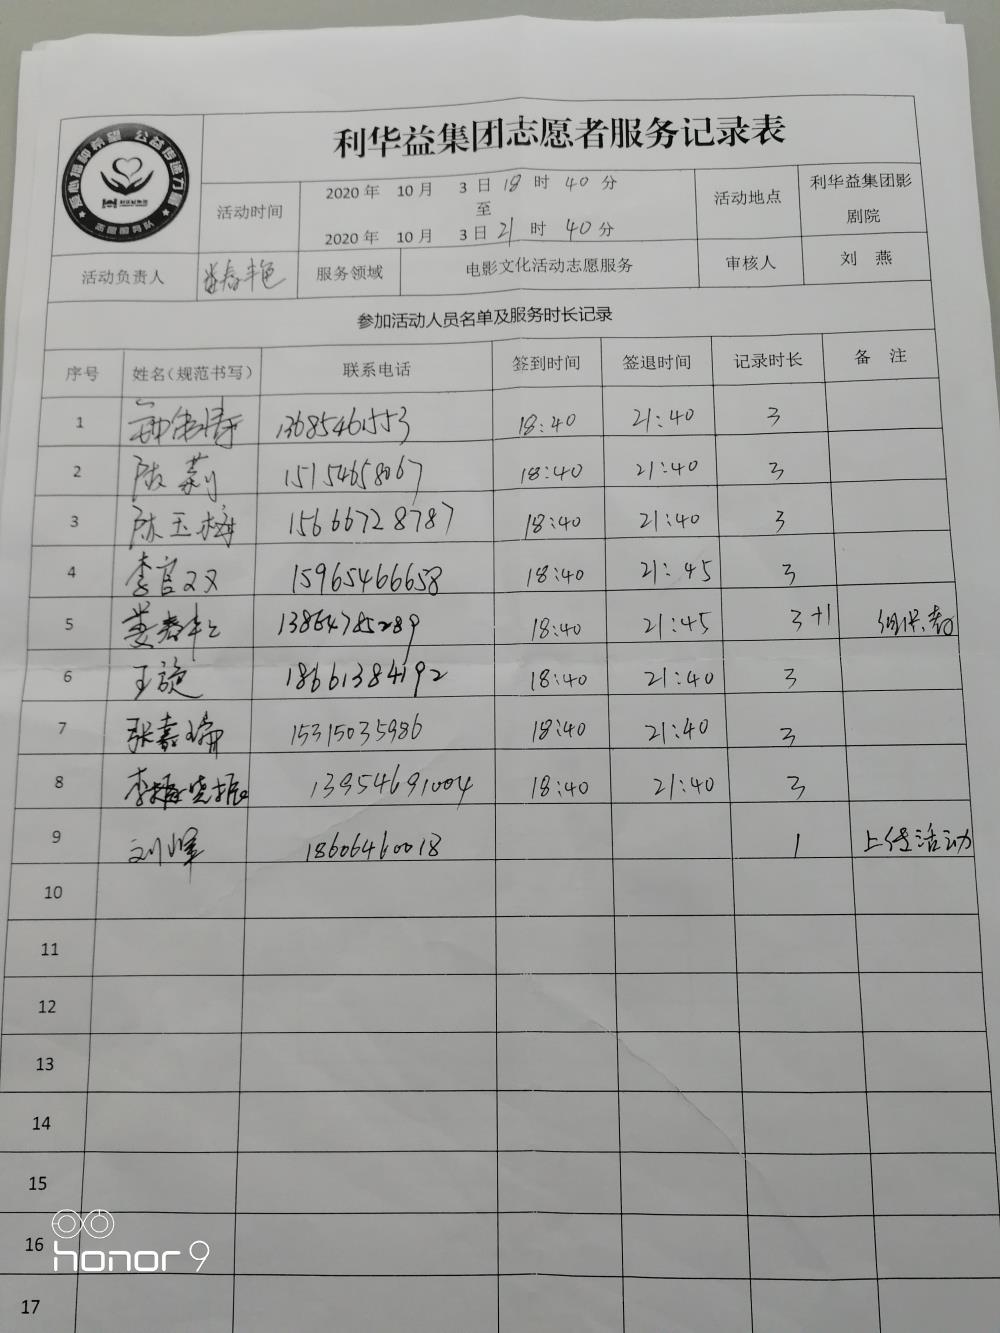 爱心播种希望 公益传递力量
利华益集团
志愿服务队
利华益集团志愿者服务记录表
活动时间
2020 年 10 月 3 日 18 时 40 分
至
2020 年 10 月 3 日 21 时 40 分
活动地点
利华益集团影剧院
活动负责人 服务领域 电影文化活动志愿服务 审核人 刘 燕
参加活动人员名单及服务时长记录
序号 姓名（规范书写） 联系电话 签到时间 签退时间 记录时长 备 注
1 13685461553 18:40 21:40 3
2 陈莉 15154658067 18:40 21:40 3
3 陈玉梅 15666728787 18:40 21:40 3
4 李官双 15965466658 18:40 21:45 3
5 13864785289 18:40 21:45 3+1
6 王旋 18661384192 18:40 21:40 3
7 张嘉 15315035986 18:40 21:40 3
8 李 13954691004 18:40 21:40 3
9 刘峰 18606460018 1 上传活动
10
11
12
13
14
15
16
17
honor 9